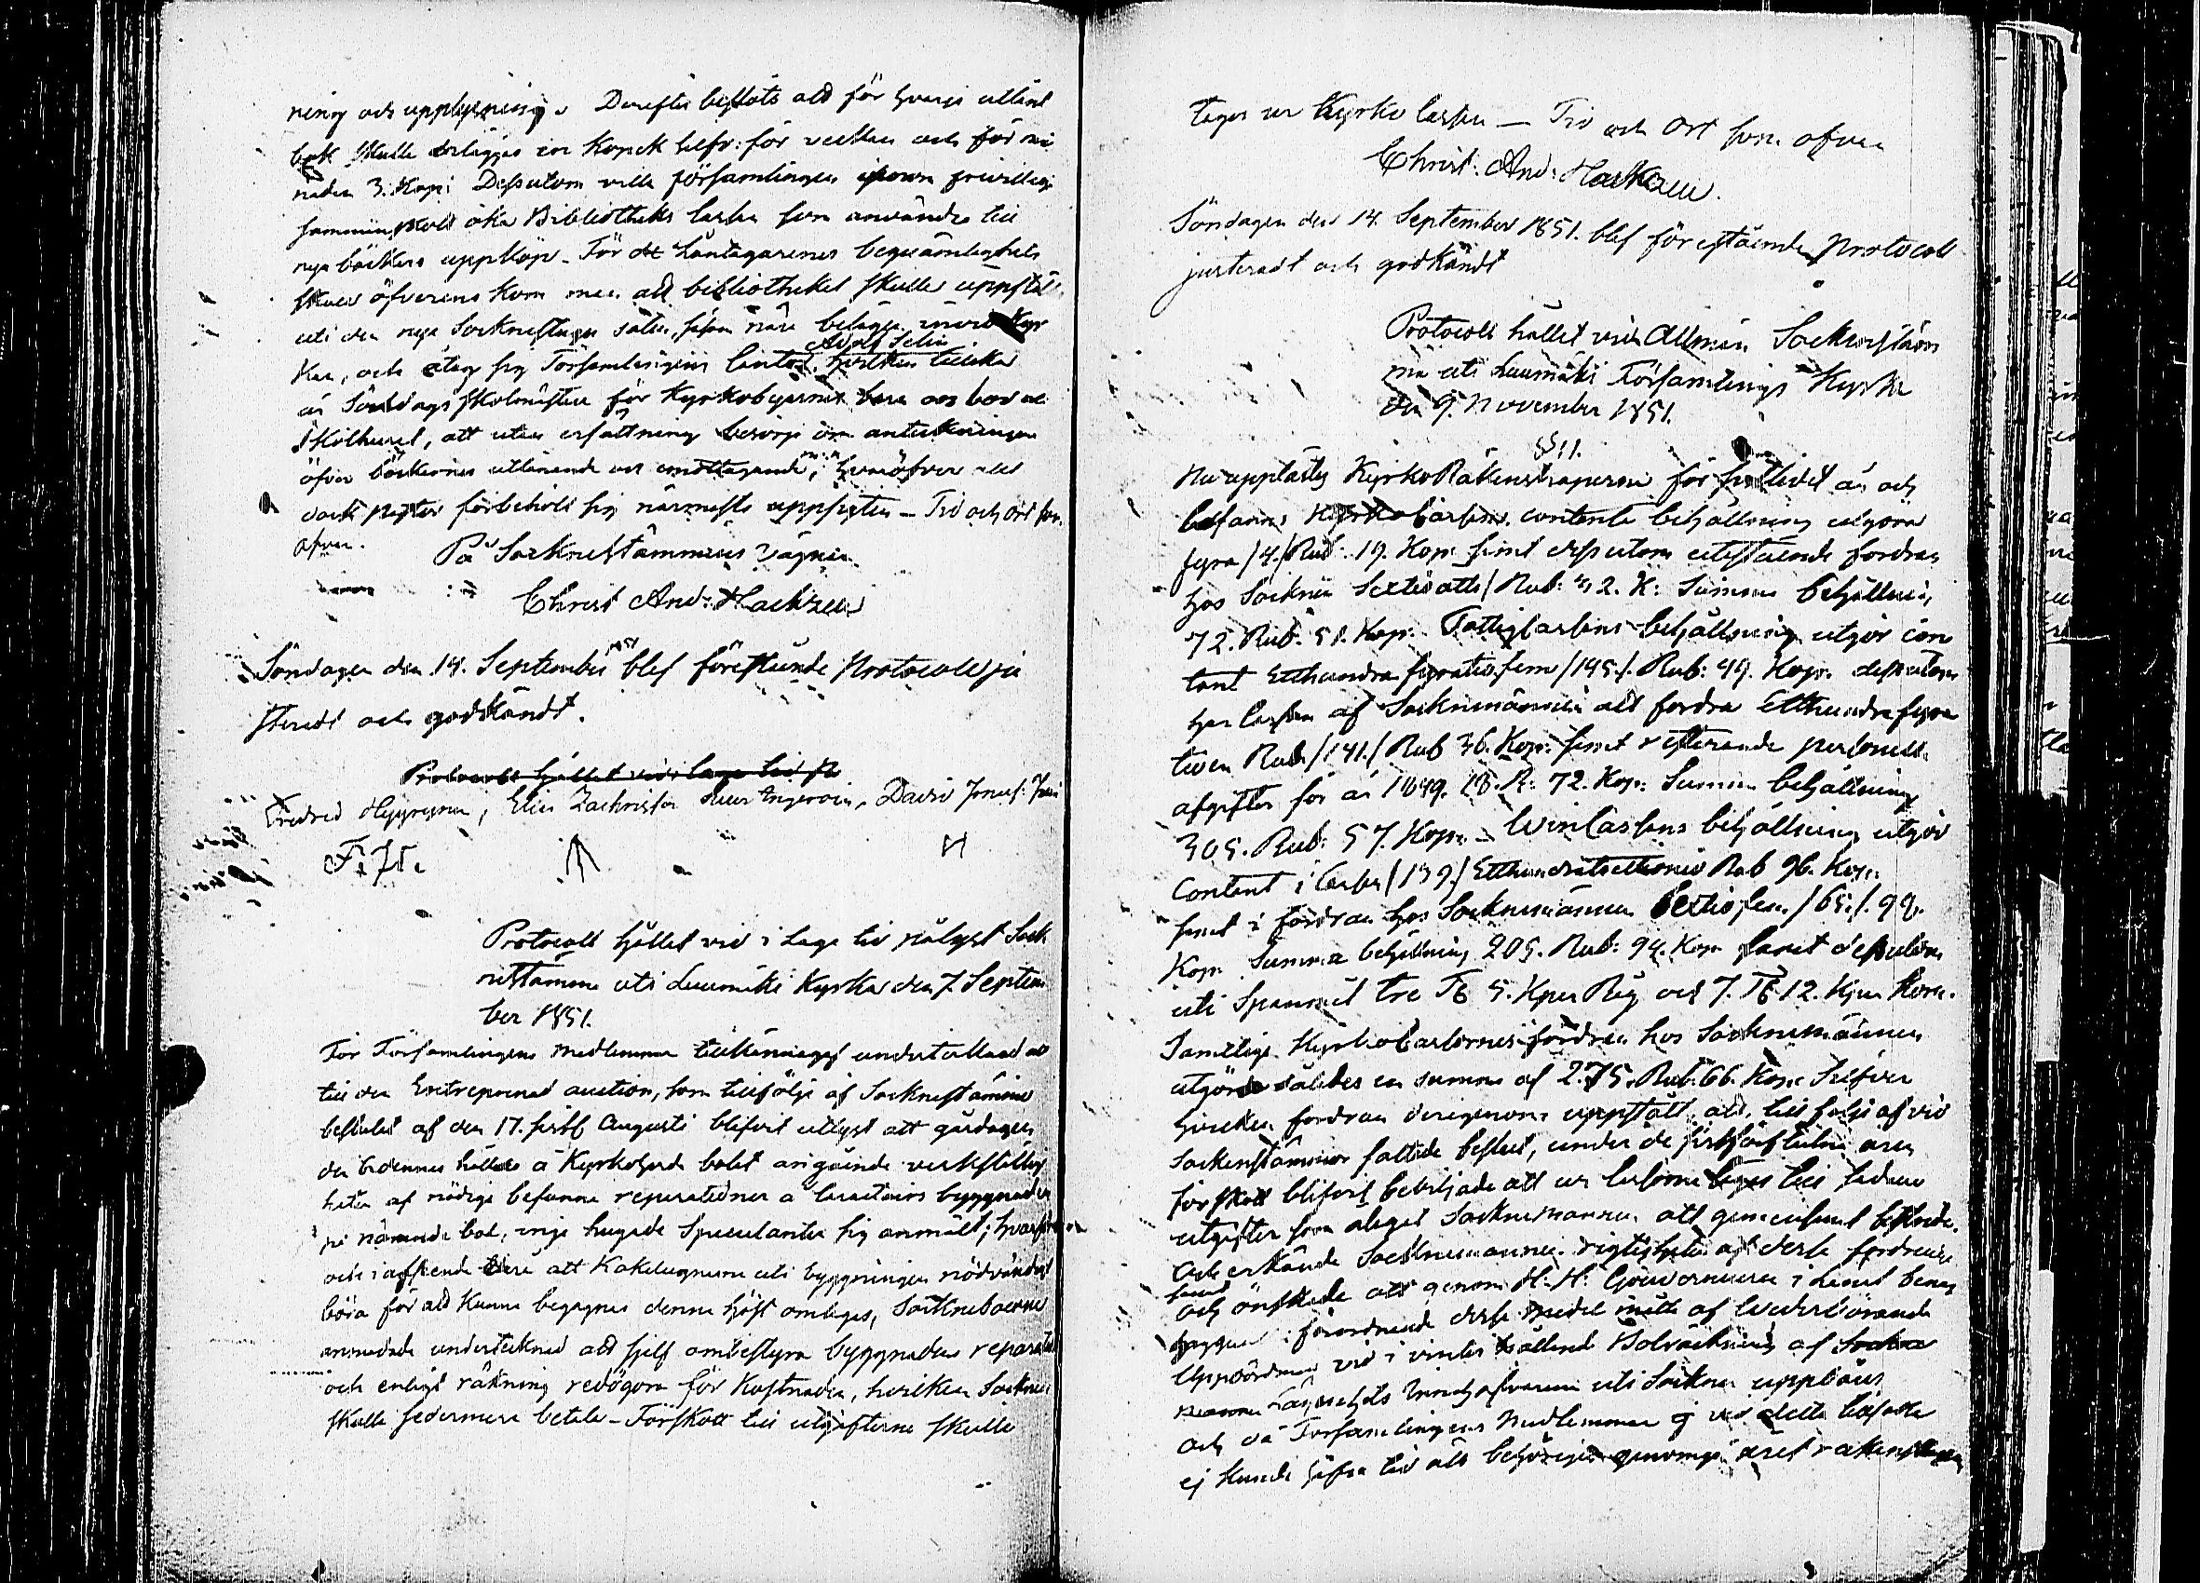 ning och upplysning. Derefter beslöts att för hvarje utlånt
bok skulle erläggas en Kopek silfv: för veckan och för må
naden 3. Kop: Dessutom ville församlingen genom frivillige
sammanskott öka Bibliotheks Cassan som användes till
nya böckers uppköp. För Låntagarenes beqvämlighets
skull öfverens kom man att bibliotheket skulle uppställas
uti den nya Sockenstugu salen, såsom nära belägen invid Kyr
kan, och åtog sig Församlingens Cantor Adolf Selin hvilken tillika
är Söndags Skolemästare för Kyrkobyarne
Skolhuset, att utan ersättning besörja om anteckningen
öfver böckernes utlånande och emottagande, hvaröfver
dock Pastor förbehöll sig närmaste uppsigten – Tid och ort som
ofvan.
På Socknestämmans vägnar
Christ And: Hackzell
Söndagen den 14. September 1851 blef förestående Protocoll ju
steradt och godkändt.
Protocoll hållet vid laga tid
Fredrik Hyyrynen, Elias Zachrisson Ingervin, David Jonas:
F. H.
Protocoll hållet vid i laga tid pålyst Sock
nestämma uti Luumäki Kyrka den 7. Septem
ber 1851.
För Församlingens medlemmar tillkännagaf undertecknad att
till den Entreprenad auction, som till följe af Socknestämmo
beslutet af den 17. sistl. Augusti blifvit utlyst att gårdagen
den hållas å Kyrkoherde bolet angående verkställig
heten af nödige befunna reparationer å byggnaden
på nämnde bol, inge hugade Speculanter sig anmält; hvarföre
och i afseende dera att Kakelugnarne uti byggningen nödvändigt
böra för att kunna begagnas denna höst omlagas, Socknеboerne
anmodade undertecknad att sjelf ombestyra byggnadens reparation
och enligt räkning redogöra för Kostnaden, hvilken Socknen
skulle sedermera betala – Förskott till utgifterne skulle
tagas ur Kyrko Cassan – Tid och Ort som ofvan
Christ: And: Hackzell.
Söndagen den 14. September 1851. blef förestående Protocoll
justeradt och godkändt
Protocoll hållet vid Allmän Sockenstäm
ma uti Luumäki Församlings Kyrka
den 9. November 1851.
§ 1.
Nu upplästes Kyrko Räkenskaperne för sistledet år och
befanns Kyrko Cassans contanta behållning utgöra
fyra /4./ Rub: 19. Kop: samt dessutom utestående fordran
hos Socknen Sextioåtta / Rub: 32. K: Summa behållning
72. Rub: 51. Kop: Fattigcassans behållning utgör con
tant Etthundra fyratiofem /145./ Rub: 49. Kop: dessutom
har Cassan af Socknemännen att fordra Etthundrafyra
tioen Rub: /141./ Rub 36. Kop: samt resterande personel
afgifter för år 1849. 18. R: 72. Kop: Summa behållning
305. Rub: 57. Kop: – Win Cassans behållning utgör
Contant i Cassa /139./ Etthundratrettionio Rub 96. Kop:
samt i fordran hos Socknemännen Sextiofem /65./. 99.
Kop: Summa behållning 205. Rub: 94. Kop: samt dessutom
uti Spannmål tre Tr 5. Kpr Råg och 7. Tr 12. Kpr Korn.
Samtlige Kyrko Cassornes fordran hos Socknemännen
utgör således en summa af 275. Rub: 66. Kop: Silfver
hvilken fordran derigenom uppstått att, till följe af vid
Sockenstämmor fattade beslut, under de sistförflutna åren
förskott blifvit beviljade att ur Cassorne tagas till sådane
utgifter som ålegat Socknemännen att gemensamt bestrida.
Och erkände Socknemännen rigtigheten af dessa fordringar
samt
och önskade att genom H: H: Gouverneurens i Länet benäg
na förordnande dessa medel måtte af Wederbörande
Uppbördsman vid i vinter hållande af
Länets Innehafvarena uti Socknen uppbäras
och då Församlingens Medlemmar ej vid detta tillfälle
ej kunde hafva tid att behörigen genomgå årets räkenskaper